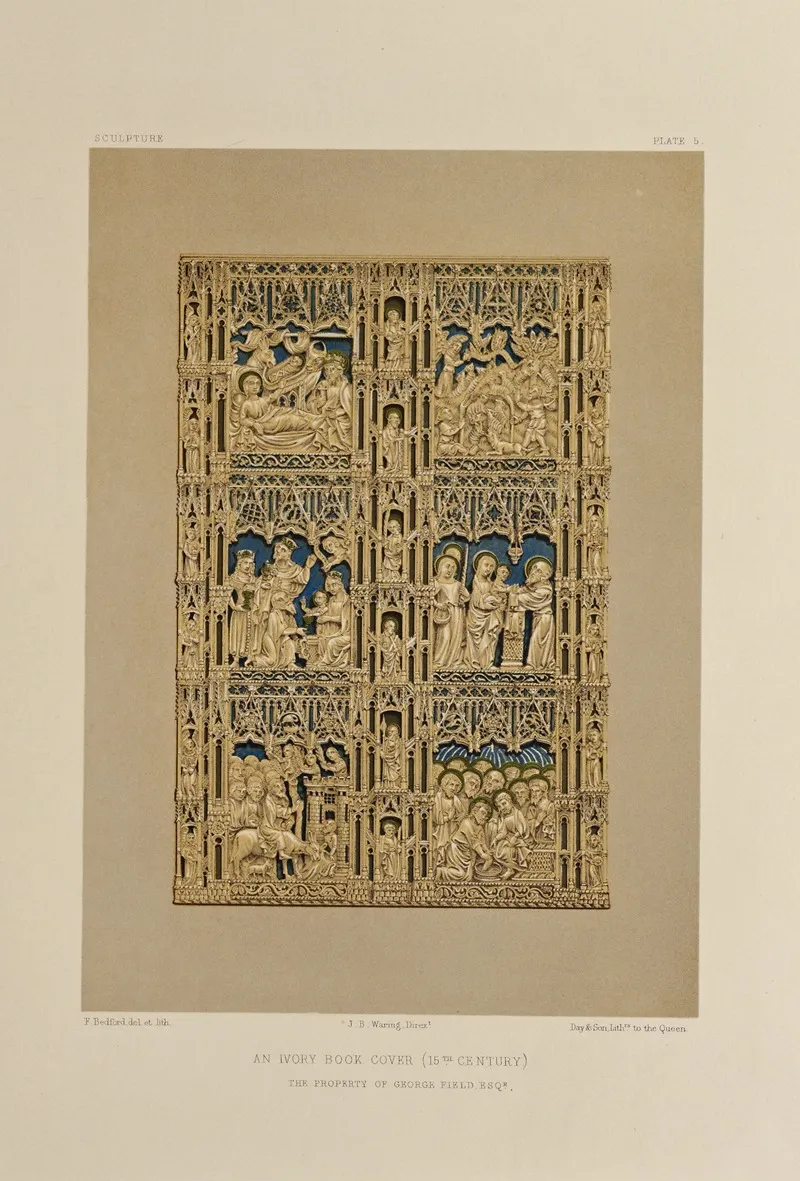 SCULPTURE
PLATE 5.
F. Bedford, del. et lith.
J. B. Waring, Direxᵗ
Day & Son, Lithʳˢ to the Queen.
AN IVORY BOOK COVER (15TH CENTURY)
THE PROPERTY OF GEORGE FIELD, ESQR.